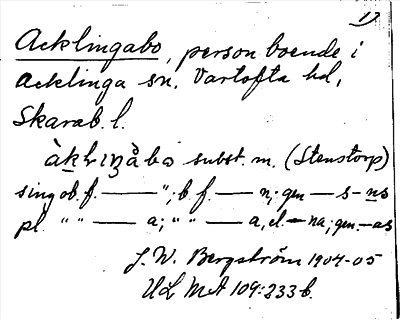 17
Acklingabo, person boende i
Acklinga sn, Vartofta hd,
Skarab. l.
subst. m. (Stenstorp)
sing ob. f. — "; b f. — n; gen — s - ns
pl. " " — a; " " — a, el. — na; gen. — as
J. W. Bergström 1904-05
ULMA 109:233 b.